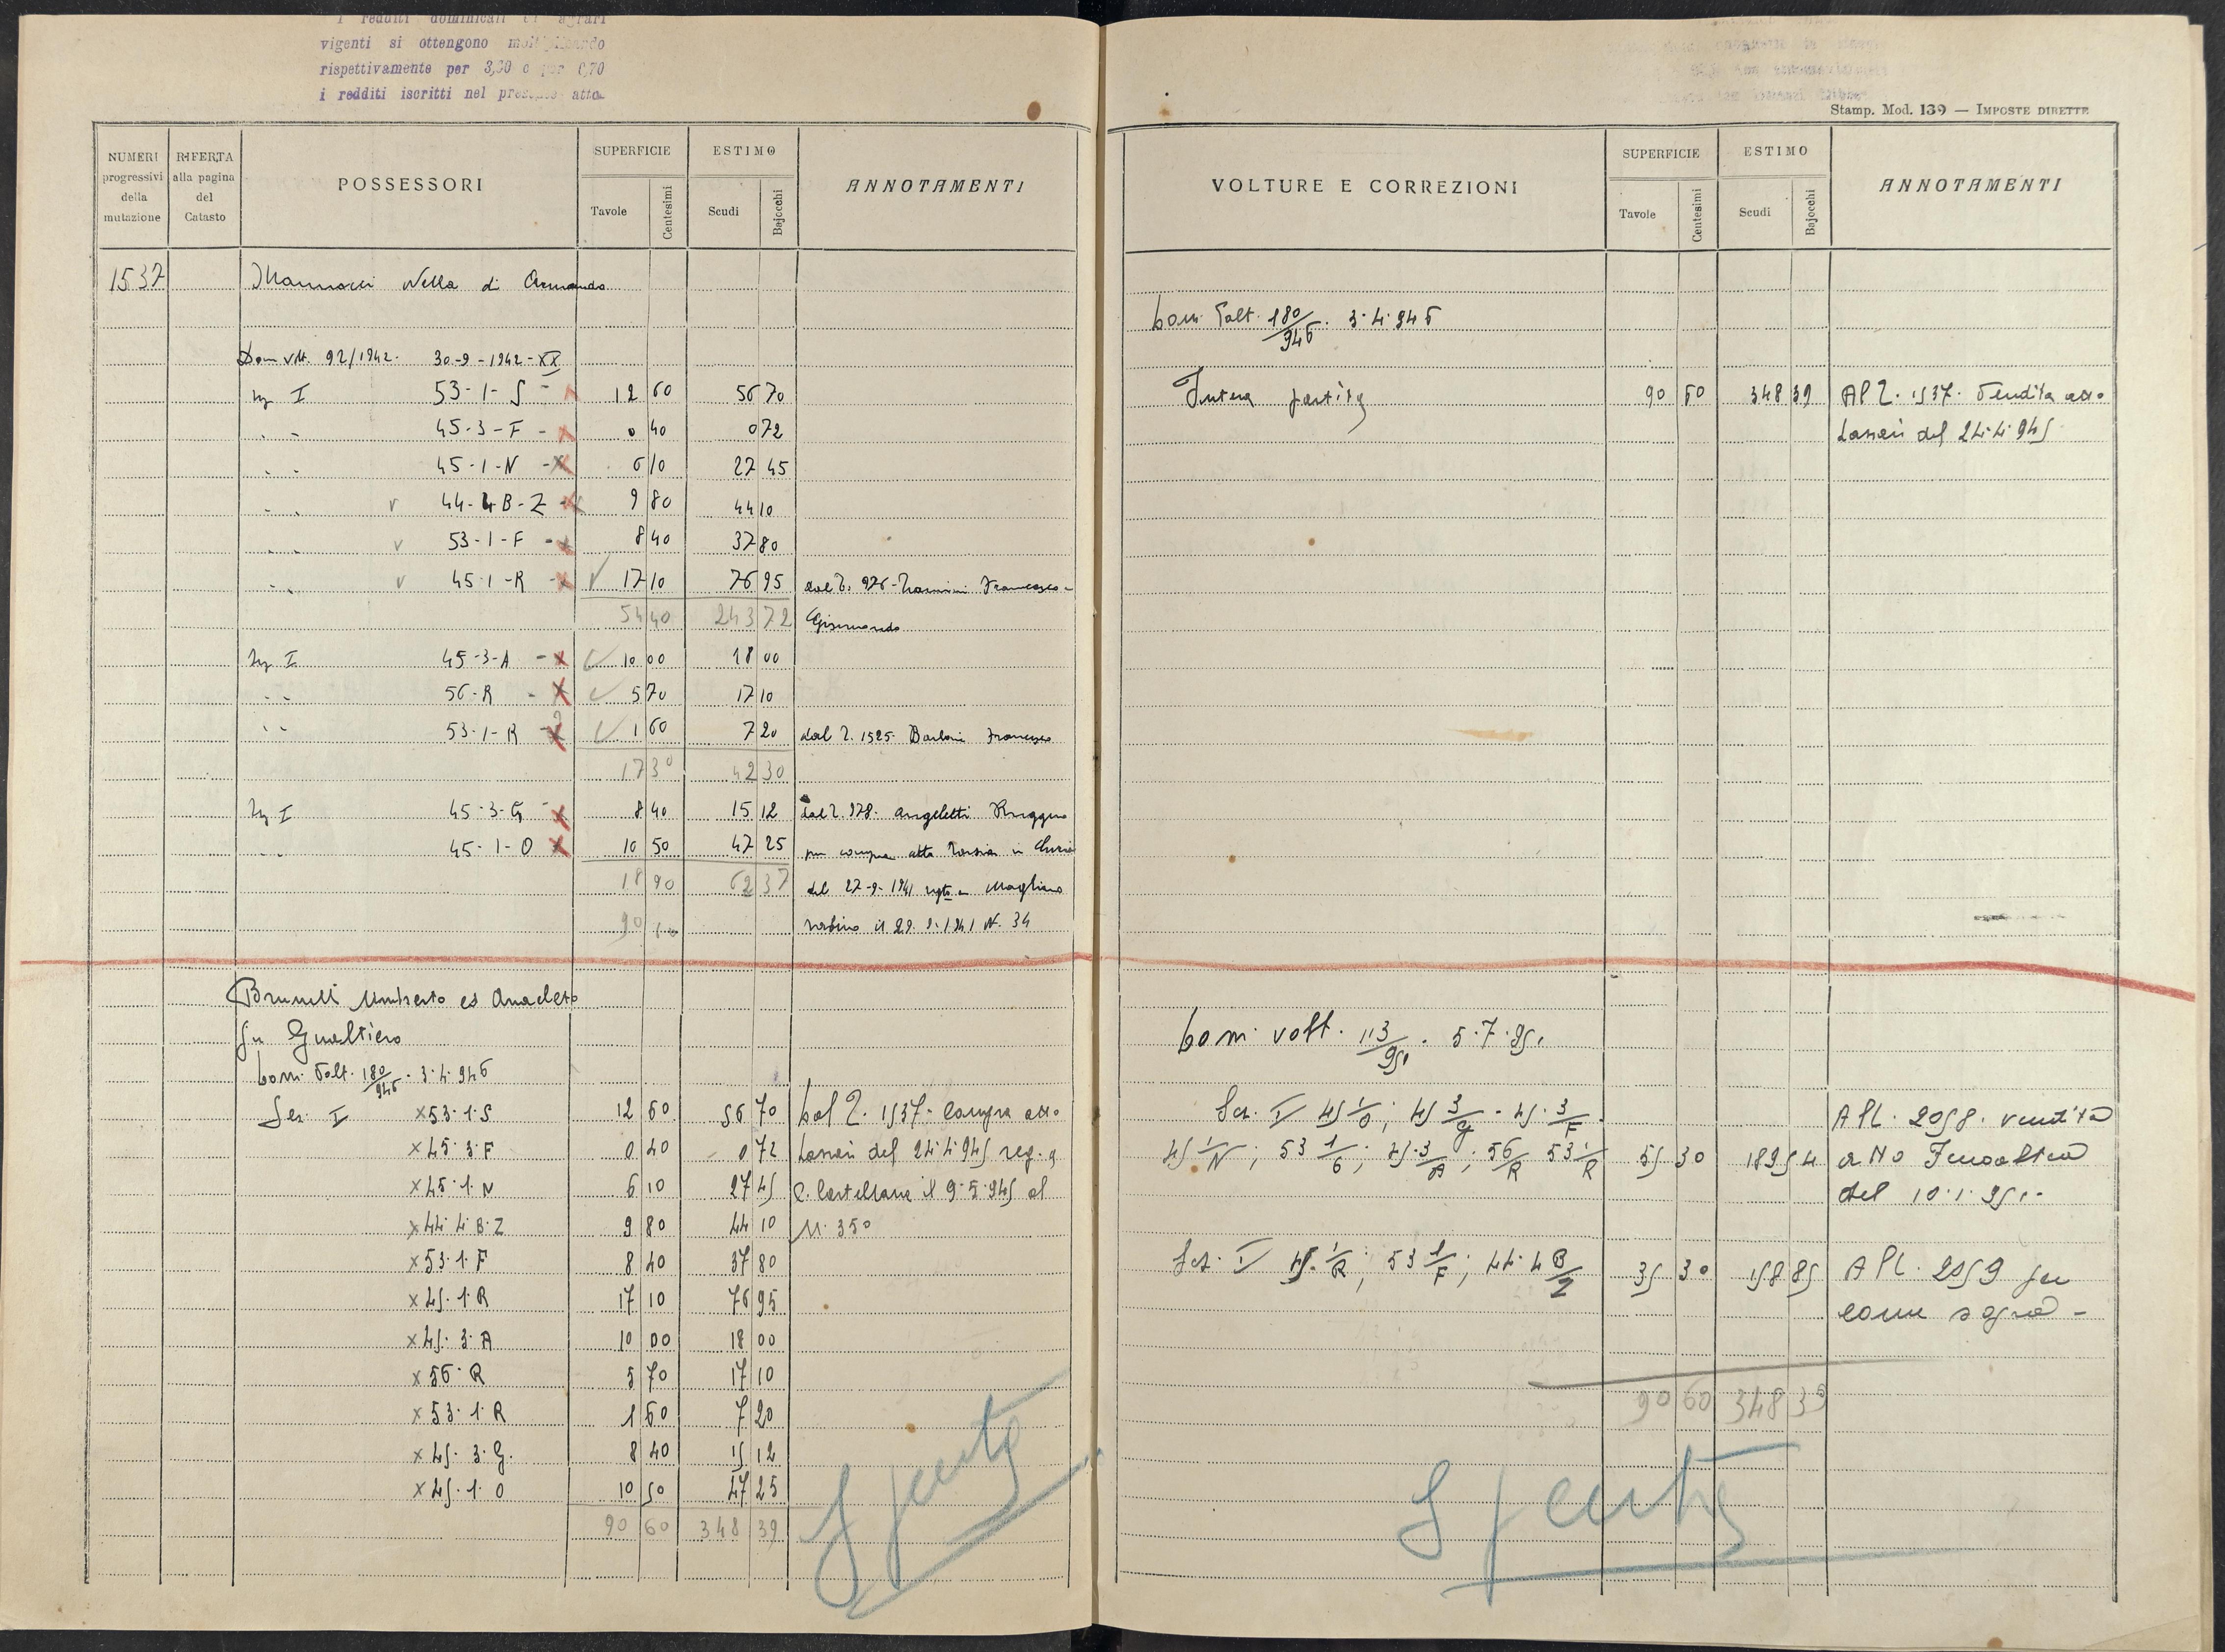 i redditi dominicali ed agrari
vigenti si ottengono moltiplicando
rispettivamente per 3,30 o per 0,70
i redditi iscritti nel presente atto
Stamp. Mod. 139 — IMPOSTE DIRETTE
NUMERI progressivi della mutazione
RIFERTA alla pagina del Catasto
POSSESSORI
SUPERFICIE
Tavole Centesimi
ESTIMO
Scudi Bajocchi
ANNOTAMENTI
1537 Nella di Armando
Dom volt. 92/1942. 30-9-1942-XX
I 53-1-S - 12 60 56 70
45-3-F - 0 40 0 72
45-1-N - 6 10 27 45
v 44-4B-Z - 9 80 44 10
v 53-1-F - 8 40 37 80
v 45-1-R - 17 10 76 95 dal P. 976 Francesco
54 40 243 72
I 45-3-A - 10 00 18 00
56-R - 5 70 17 10
53-1-R - 1 60 7 20 dal P. 1525 Francesco
17 30 42 30
I 45-3-G - 8 40 15 12 dal P. 978. Angeletti Ruggero
45-1-O 10 50 47 25 per compra atto in
18 90 62 37 del 27-9-1941 Magliano
90 60 Sabino il N. 34
Brunelli Umberto ed Anacleto
fu Gualtiero
Dom. Volt. 180/946. 3.4.946
Sez. I x 53.1.S 12 60 56 70 Dal P. 1537. Compra atto
x 45.3.F 0 40 0 72 del 24.4.945 reg. a
x 45.1.N 6 10 27 45 C. Castellana il 9.5.945 al
x 44.4.B.Z 9 80 44 10 N. 350
x 53.1.F 8 40 37 80
x 45.1.R 17 10 76 95
x 45.3.A 10 00 18 00
x 56.R 5 70 17 10
x 53.1.R 1 60 7 20
x 45.3.G. 8 40 15 12
x 45.1.O 10 50 47 25
90 60 348 39
Spenta
VOLTURE E CORREZIONI
SUPERFICIE
Tavole Centesimi
ESTIMO
Scudi Bajocchi
ANNOTAMENTI
Dom. Volt. 180/946. 3.4.946
Intera partita 90 60 348 39 Al P. 1537. Vendita atto
del 24.4.945
Dom. volt. 113/951. 5.7.951
Sez. I 45 1/O; 45 3/G - 45.3/F. Al P. 2058. vendita
45 1/N; 53 1/S; 45.3/A; 56/R 53 1/R 55 30 189 54
del 10.1.951.
Sez. I 45.1/R; 53 1/F; 44.4 B/Z 35 30 158 85 Al P. 2059 per
come sopra -
90 60 348 39
Spenta